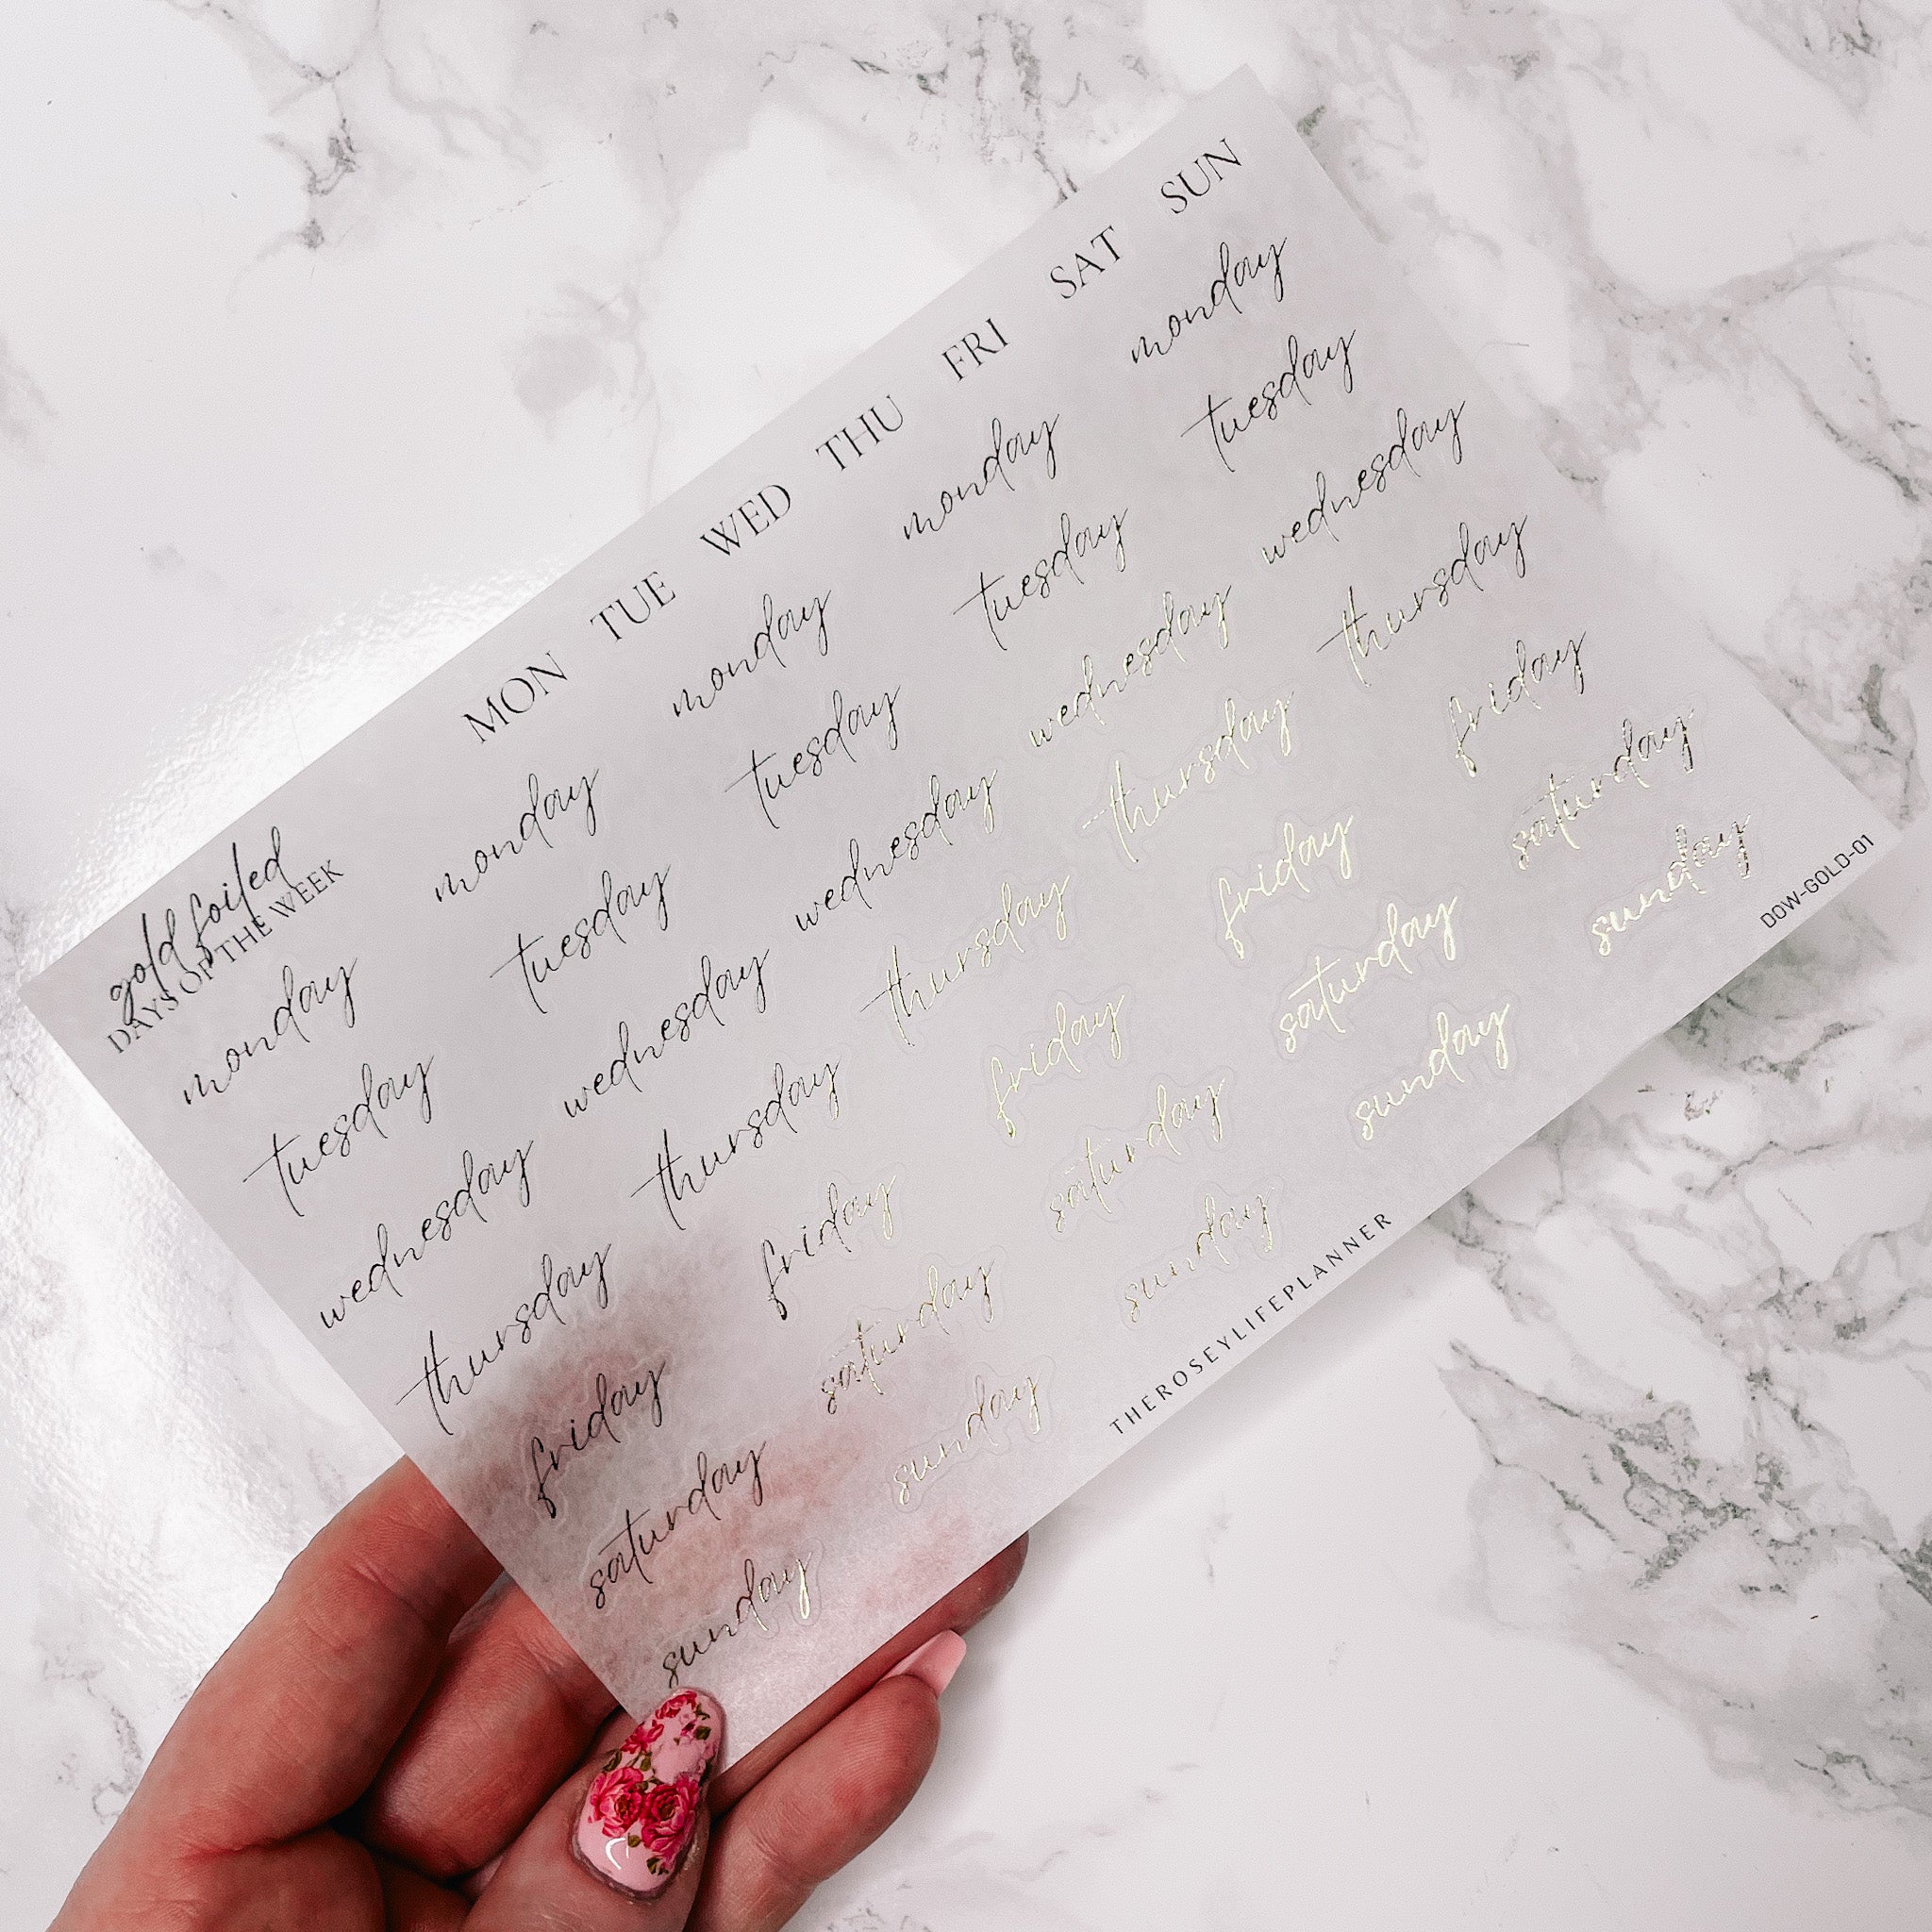 gold foiled
DAYS OF THE WEEK
MON TUE WED THU FRI SAT SUN
monday monday monday monday monday
tuesday tuesday tuesday tuesday tuesday
wednesday wednesday wednesday wednesday wednesday
thursday thursday thursday thursday thursday
friday friday friday friday friday
saturday saturday saturday saturday saturday
sunday sunday sunday sunday sunday
THEROSEYLIFEPLANNER
DOW-GOLD-01